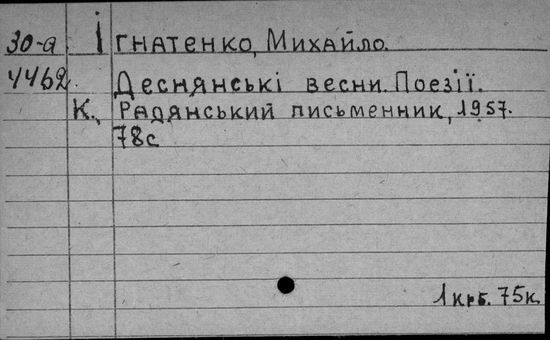 30-а Ігнатенко, Михайло.
4462. Деснянські весни. Поезії.
К., Радянський письменник, 1957.
78с
1 крб. 75к.